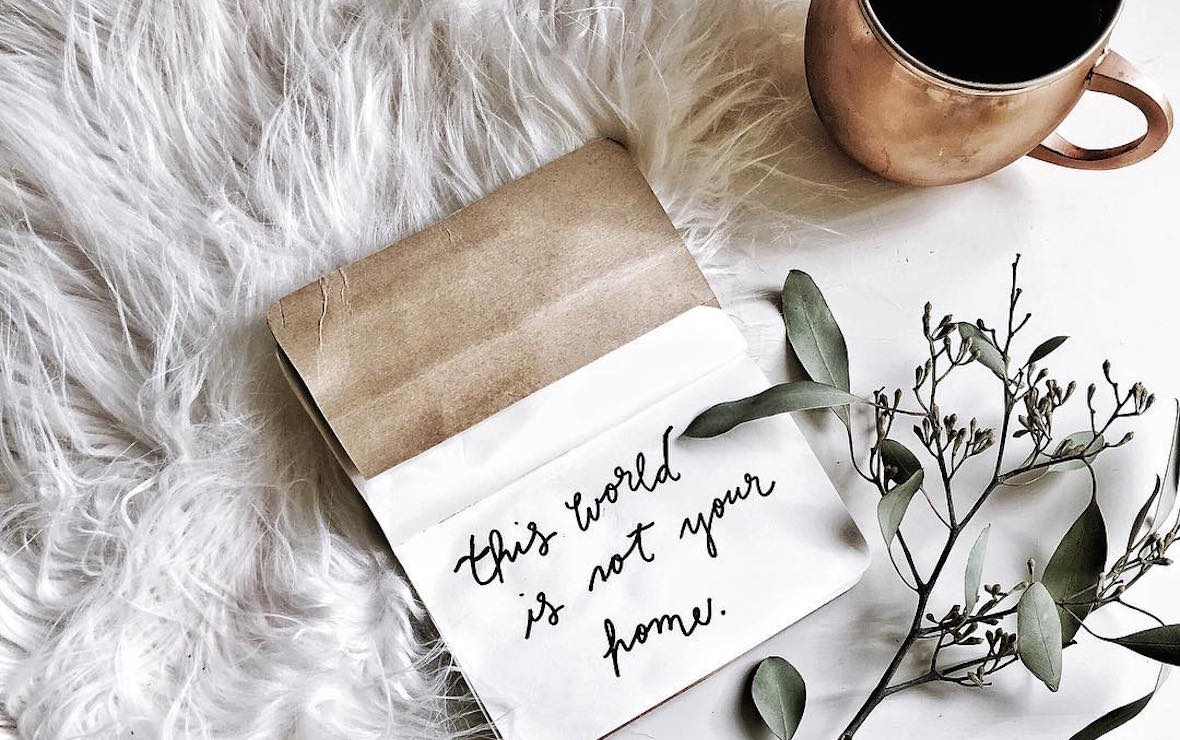 this world
is not your
home.